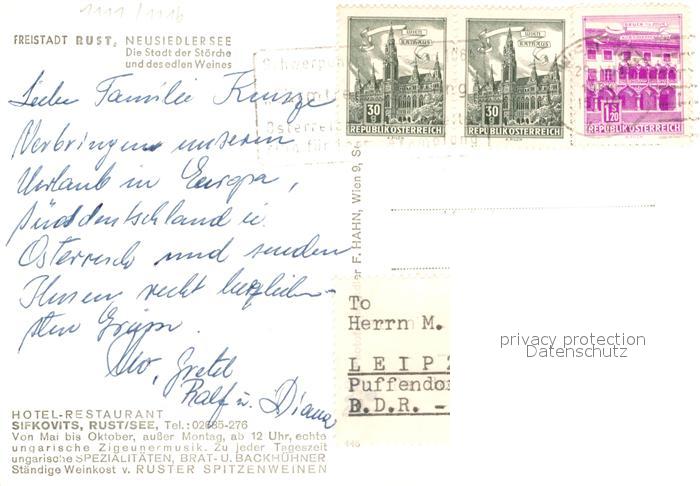 1111/1116
FREISTADT RUST, NEUSIEDLERSEE
Die Stadt der Störche
und des edlen Weines
WIEN
RATHAUS
30 g
REPUBLIK ÖSTERREICH
WIEN
RATHAUS
30 g
REPUBLIK ÖSTERREICH
S 1.20
REPUBLIK ÖSTERREICH
Liebe Familie Kunze
Verbringen unseren
Urlaub in Europa,
Süddeutschland u.
Österreich und senden
Ihnen recht herzlich-
sten Grüsse.
Gretel
Ralf u. Diana
F. HAHN, Wien 9,
To
Herrn M.
LEIPZ
Puffendor
B.D.R. -
privacy protection
Datenschutz
HOTEL-RESTAURANT
SIFKOVITS, RUST/SEE, Tel.: 02685-276
Von Mai bis Oktober, außer Montag, ab 12 Uhr, echte
ungarische Zigeunermusik. Zu jeder Tageszeit
ungarische SPEZIALITÄTEN, BRAT- U. BACKHÜHNER
Ständige Weinkost v. RUSTER SPITZENWEINEN